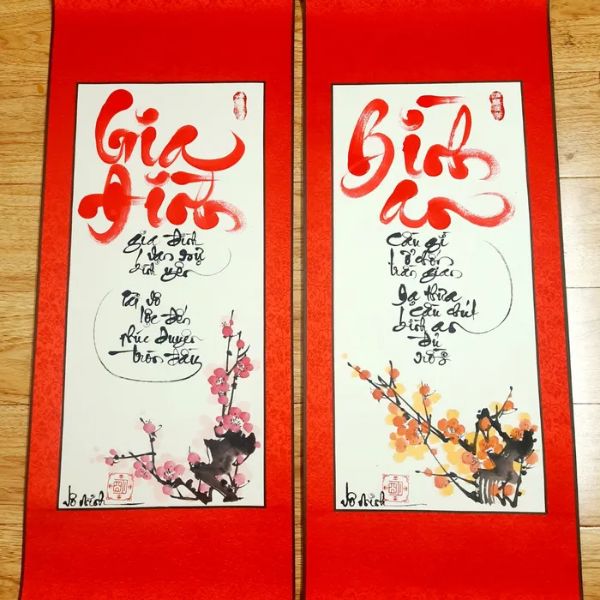 Gia
Đình
gia đình
vạn sự
bình yên
tài vô
lộc đến
phúc duyên
tròn đầy
Bình
an
cần gì
ở chốn
trần gian
Dạ thưa
cần chút
bình an
đủ
rồi